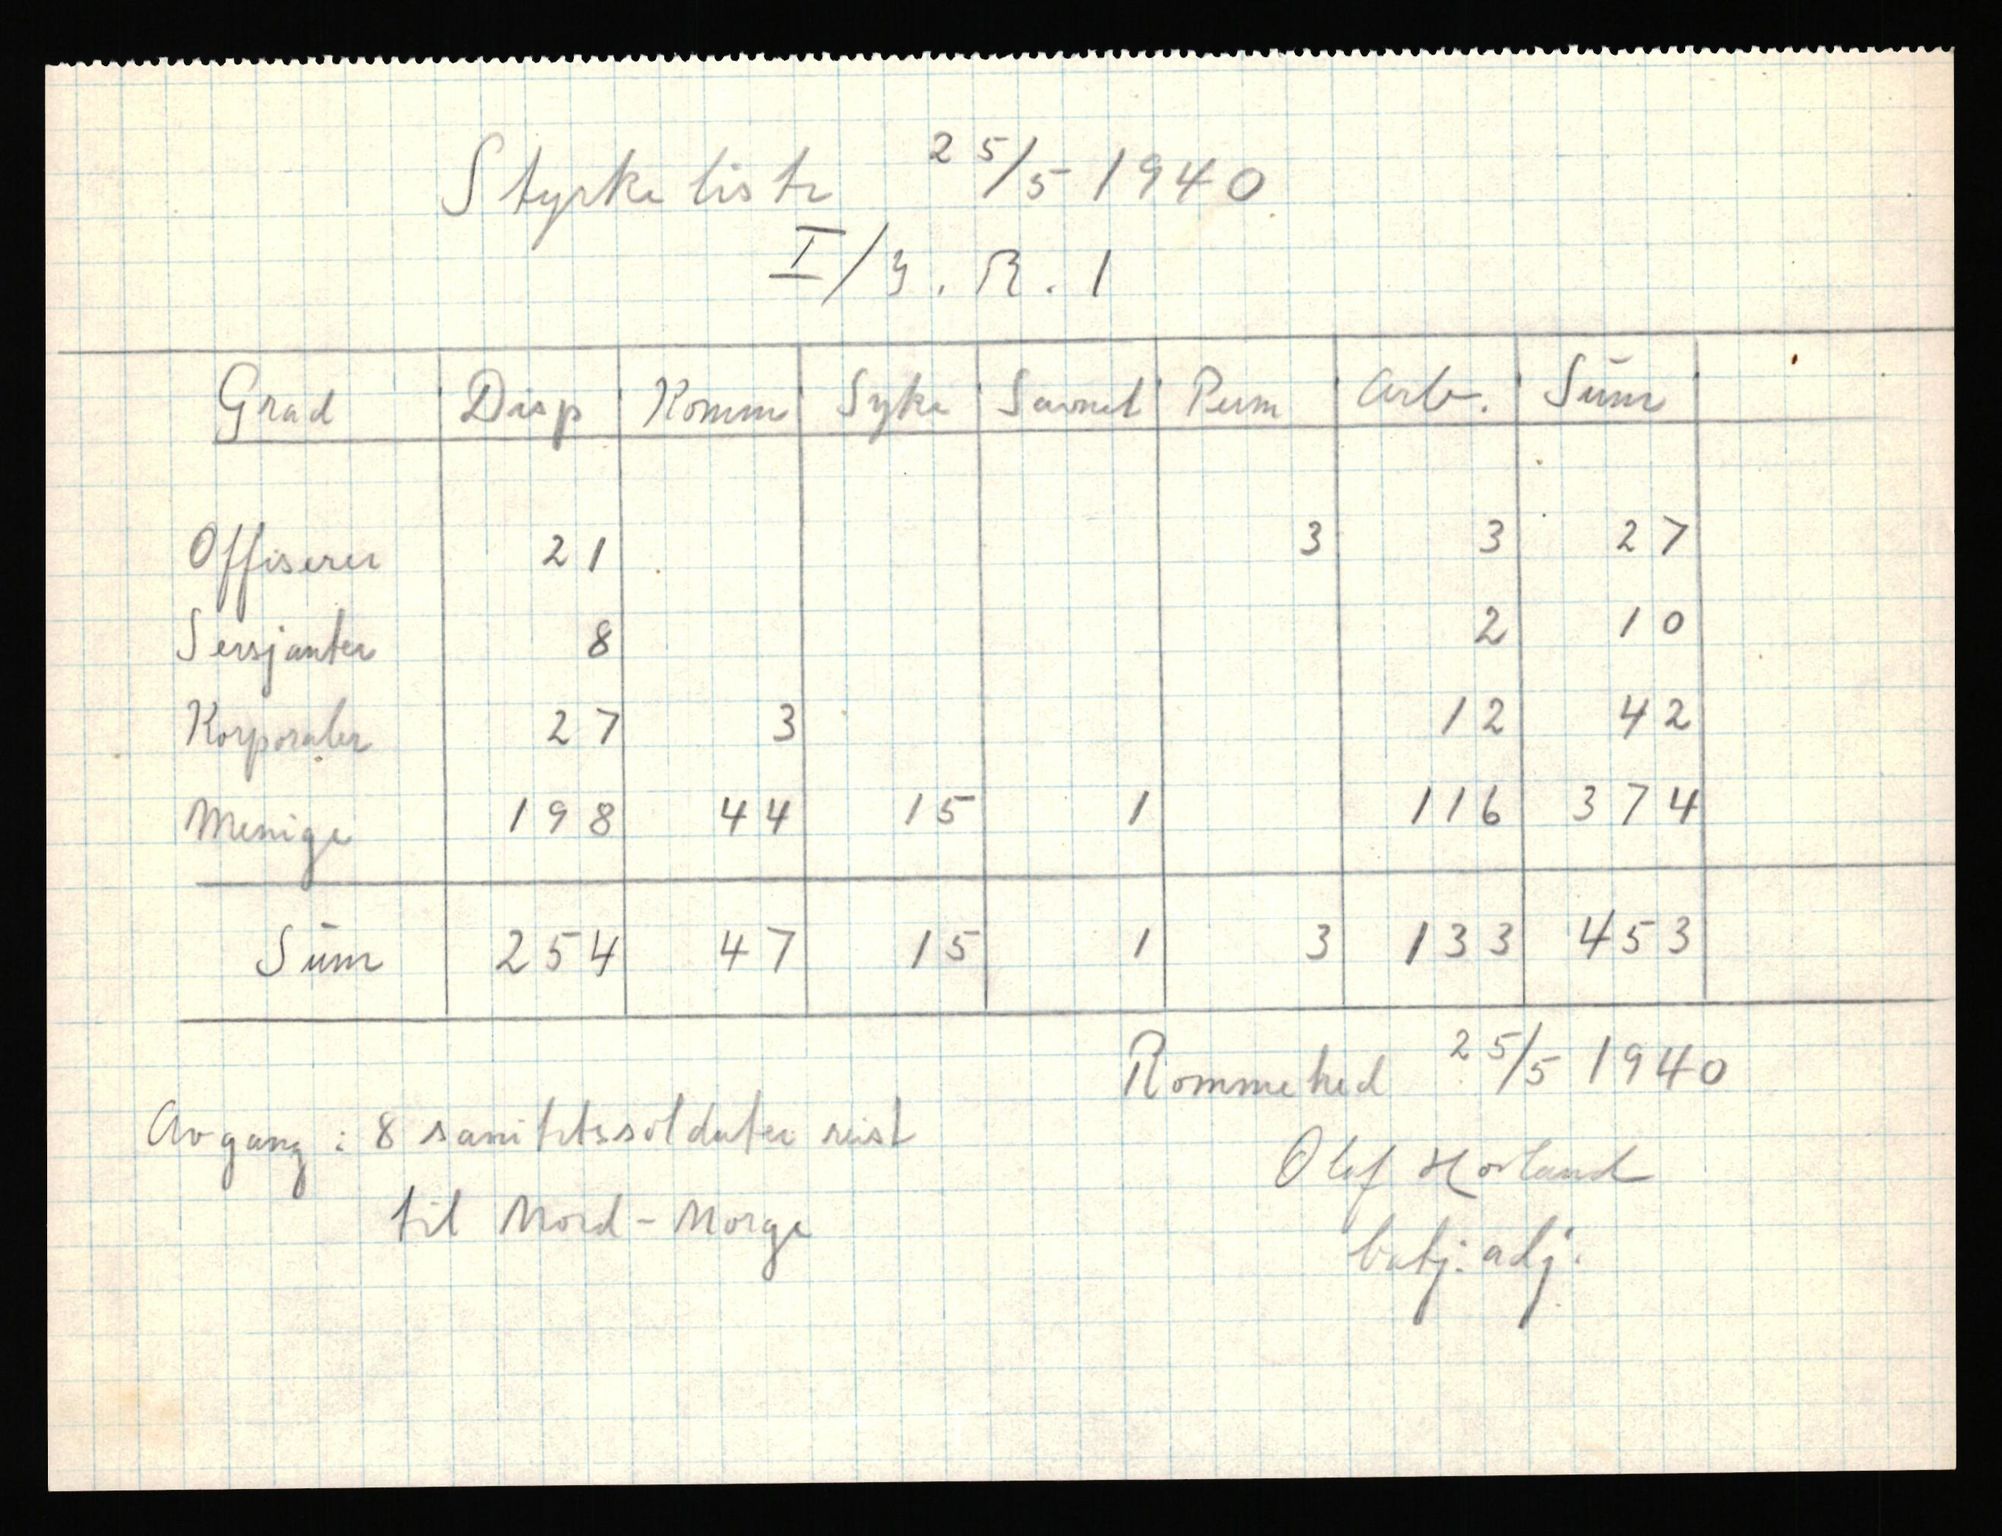 Styrkeliste 25/5 1940
I/J.R.1
Grad Disp Komm Syke Savnet Perm Arb. Sum
Offiserer 21 3 3 27
Sersjanter 8 2 10
Korporaler 27 3 12 42
Menige 198 44 15 1 116 374
Sum 254 47 15 1 3 133 453
Rommehed 25/5 1940
Avgang: 8 sanitetssoldater reist
til Nord-Norge
Olaf Hovland
batj. adj.